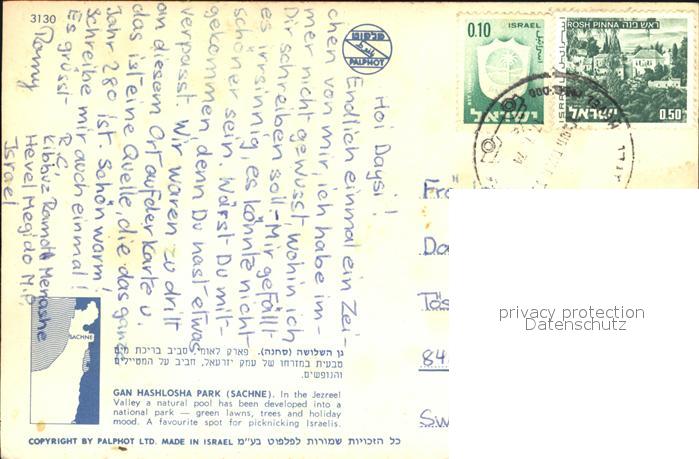 3130
פלפוט
PALPHOT
0.10
ISRAEL
ישראל
ROSH PINNA ראש פינה
ISRAEL
ישראל
0.50
Hoi Daysi!
Endlich einmal ein Zei-
chen von mir, ich habe im-
mer nicht gewusst, wohin ich
Dir schreiben soll. Mir gefällt
es irrsinnig, es könnte nicht
schöner sein. Wärst Du mit-
gekommen, denn Du hast etwas
verpasst. Wir waren zu dritt
an diesem Ort auf der Karte u.
das ist eine Quelle, die das ganze
Jahr 28° ist. Schön warm!
Schreibe mir auch einmal!
Es grüsst
Ramy
R.C.
Kibbuz Ramoth Menashe
Hevel Megido M.P.
Israel
Fr
Da
Tös
84
Sw
privacy protection
Datenschutz
SACHNE
גן השלושה (סחנה). פארק לאומי, סביב בריכת מים
טבעית במזרחו של עמק יזרעאל, חביב על המטיילים
והנופשים.
GAN HASHLOSHA PARK (SACHNE). In the Jezreel
Valley a natural pool has been developed into a
national park — green lawns, trees and holiday
mood. A favourite spot for picknicking Israelis.
COPYRIGHT BY PALPHOT LTD. MADE IN ISRAEL כל הזכויות שמורות לפלפוט בע"מ